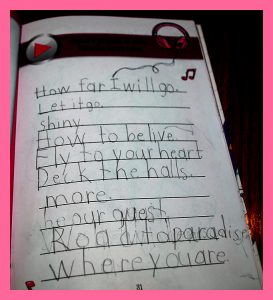 How far I will go.
Let it go.
shiny
How to belive.
Fly to your heart
Deck the halls.
more.
be our guest
to paradise
where you are.
31